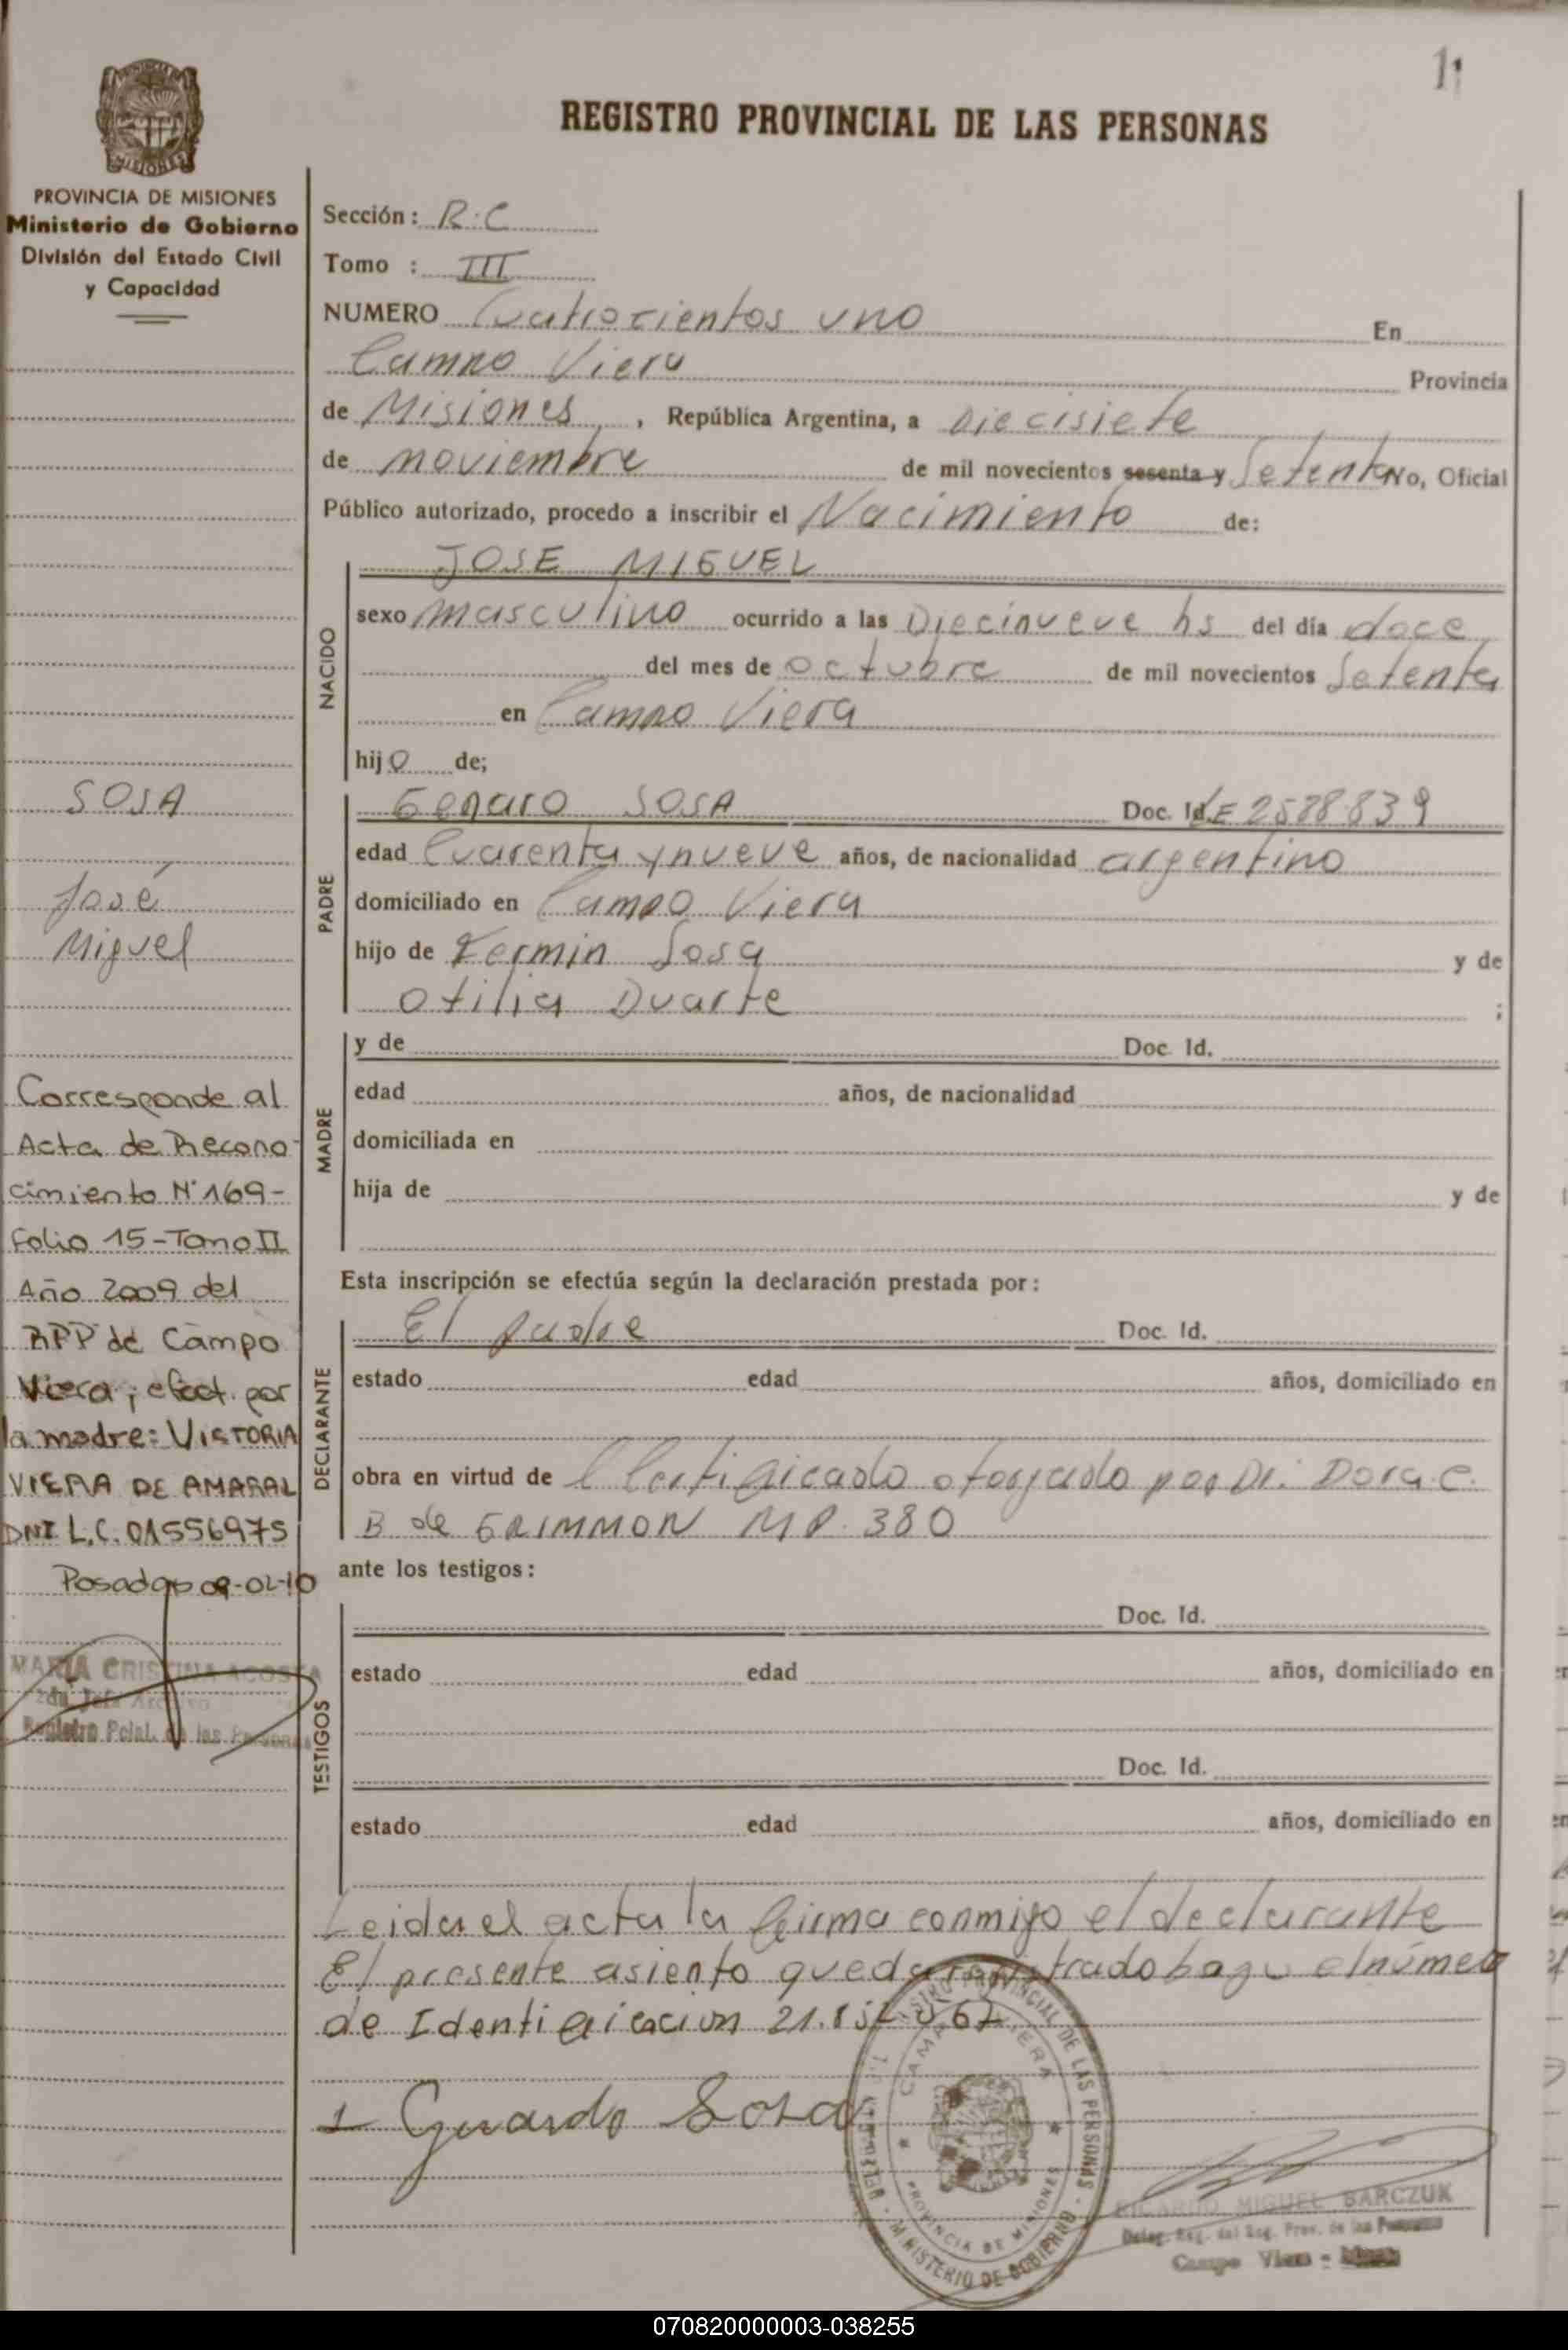 REGISTRO PROVINCIAL DE LAS PERSONAS
MISIONES
PROVINCIA DE MISIONES
Ministerio de Gobierno
División del Estado Civil
y Capacidad
Sección: R.C
Tomo : III
NUMERO Cuatrocientos uno En
Campo Viera Provincia
de Misiones, República Argentina, a Diecisiete
de noviembre de mil novecientos sesenta y Setenta Yo, Oficial
Público autorizado, procedo a inscribir el Nacimiento de:
NACIDO
JOSE MIGUEL
sexo masculino ocurrido a las Diecinueve hs del día doce
del mes de octubre de mil novecientos Setenta
en Campo Viera
hijo de;
PADRE
Genaro SOSA Doc. Id. LE 2588839
edad Cuarenta y nueve años, de nacionalidad argentino
domiciliado en Campo Viera
hijo de Fermin Sosa y de
Otilia Duarte ;
MADRE
y de Doc. Id.
edad años, de nacionalidad
domiciliada en
hija de y de
Esta inscripción se efectúa según la declaración prestada por:
DECLARANTE
El padre Doc. Id.
estado edad años, domiciliado en
obra en virtud de Certificado otorgado por Dr. Dora C.
B de GRIMMON MP. 380
ante los testigos:
TESTIGOS
Doc. Id.
estado edad años, domiciliado en
Doc. Id.
estado edad años, domiciliado en
Leida el acta la firma conmigo el declarante
El presente asiento queda registrado bago el número
de Identificacion
Sosa
SOSA
José
Miguel
Corresponde al
Acta de Recono-
cimiento N° 169-
Folio 15-Tomo II
Año 2009 del
RPP de Campo
Viera; efect. por
la madre: VICTORIA
VIERA DE AMARAL
DNI L.C. 01556975
Posadas 09-02-10
MARIA CRISTINA ACOSTA
Registro Pcial. de las Personas
REGISTRO PROVINCIAL DE LAS PERSONAS - MINISTERIO DE GOBIERNO
CAMPO VIERA
PROVINCIA DE MISIONES
RICARDO MIGUEL BARCZUK
Deleg. Reg. del Reg. Prov. de las Personas
Campo Viera -
070820000003-038255